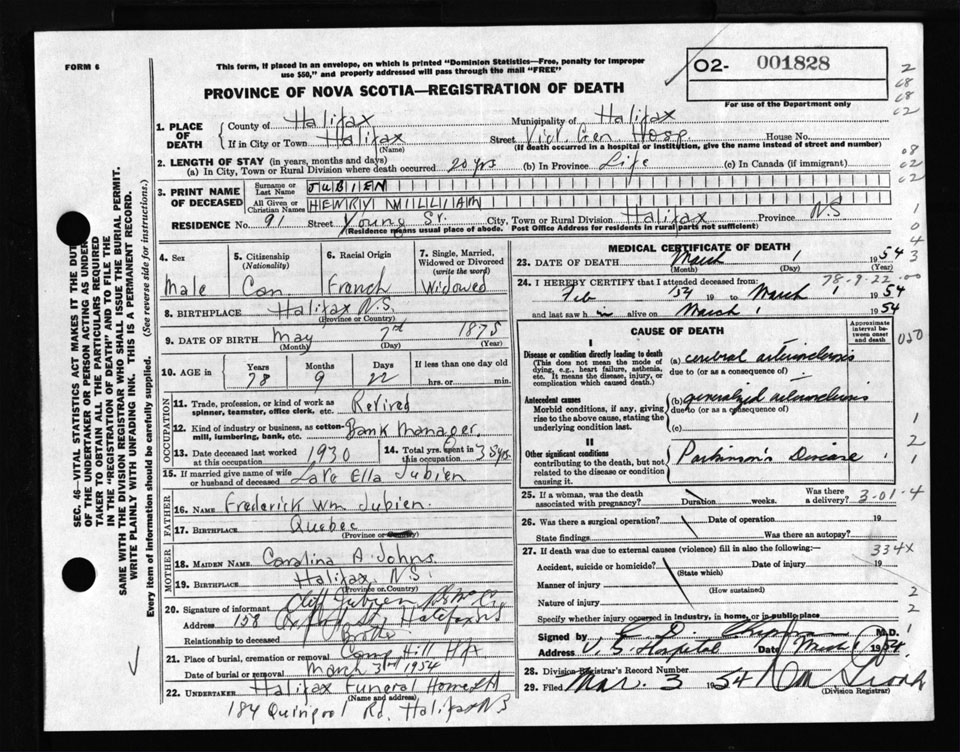 FORM 6
This form, if placed in an envelope, on which is printed "Dominion Statistics—Free, penalty for improper
use $50," and properly addressed will pass through the mail "FREE"
O2- 001828
For use of the Department only
PROVINCE OF NOVA SCOTIA—REGISTRATION OF DEATH
1. PLACE OF DEATH
County of Halifax Municipality of Halifax
If in City or Town Halifax (Name) Street Vict. Gen Hosp. House No.
(If death occurred in a hospital or institution, give the name instead of street and number)
2. LENGTH OF STAY (in years, months and days)
(a) In City, Town or Rural Division where death occurred 20 yrs (b) In Province Life (c) In Canada (if immigrant)
3. PRINT NAME OF DECEASED
Surname or Last Name JUBIEN
All Given or Christian Names HENRY WILLIAM
RESIDENCE No. 91 Street Young St. City, Town or Rural Division Halifax Province N.S
(Residence means usual place of abode. Post Office Address for residents in rural parts not sufficient)
4. Sex Male
5. Citizenship (Nationality) Can
6. Racial Origin French
7. Single, Married, Widowed or Divorced (write the word) Widowed
8. BIRTHPLACE Halifax N.S.
(Province or Country)
9. DATE OF BIRTH May 7nd 1875
(Month) (Day) (Year)
10. AGE in Years 78 Months 9 Days 22 If less than one day old hrs. or min.
OCCUPATION
11. Trade, profession, or kind of work as spinner, teamster, office clerk, etc. Retired
12. Kind of industry or business, as cotton-mill, lumbering, bank, etc. Bank Manager.
13. Date deceased last worked at this occupation 1930
14. Total yrs. spent in this occupation 35 yrs.
15. If married give name of wife or husband of deceased Late Ella Jubien
FATHER
16. Name Frederick Wm Jubien.
17. Birthplace Quebec
(Province or Country)
MOTHER
18. MAIDEN NAME Carolina A Johns
19. Birthplace Halifax, N.S.
(Province or Country)
20. Signature of informant Cliff Jubien
Address 158 Halifax NS
Relationship to deceased Brother
21. Place of burial, cremation or removal Camp Hill HX
Date of burial or removal March 3rd 1954
22. UNDERTAKER Halifax Funeral Home Ltd
(Name and address)
184 Quinpool Rd. Halifax NS
MEDICAL CERTIFICATE OF DEATH
23. DATE OF DEATH March 1 1954
(Month) (Day) (Year)
78-9-22-00
24. I HEREBY CERTIFY that I attended deceased from:
Feb 1/54 19 to March 1 1954
and last saw him alive on March 1 1954
CAUSE OF DEATH
Approximate interval between onset and death
I
Disease or condition directly leading to death
(This does not mean the mode of dying, e.g., heart failure, asthenia, etc. It means the disease, injury, or complication which caused death.)
(a) cerebral arteriosclerosis
due to (or as a consequence of)
Antecedent causes
Morbid conditions, if any, giving rise to the above cause, stating the underlying condition last.
(b) generalized arteriosclerosis
due to (or as a consequence of)
(c)
II
Other significant conditions
contributing to the death, but not related to the disease or condition causing it.
Parkinson's Disease
25. If a woman, was the death associated with pregnancy? Duration weeks. Was there a delivery? 3-01-4
26. Was there a surgical operation? Date of operation 19
State findings Was there an autopsy?
27. If death was due to external causes (violence) fill in also the following:— 334X
Accident, suicide or homicide? (State which) Date of injury 19
Manner of injury
(How sustained)
Nature of injury
Specify whether injury occurred in industry, in home, or in public place
Signed by M.D.
Address V. G. Hospital Date March 1 1954.
28. Division Registrar's Record Number
29. Filed Mar. 3 1954
(Division Registrar)
SEC. 46—VITAL STATISTICS ACT MAKES IT THE DUTY
OF THE UNDERTAKER OR PERSON ACTING AS UNDER-
TAKER TO OBTAIN ALL THE PARTICULARS REQUIRED
IN THE "REGISTRATION OF DEATH" AND TO FILE THE
SAME WITH THE DIVISION REGISTRAR WHO SHALL ISSUE THE BURIAL PERMIT.
WRITE PLAINLY WITH UNFADING INK. THIS IS A PERMANENT RECORD.
Every item of information should be carefully supplied. (See reverse side for instructions.)
2
68
68
02
08
02
02
1
0
4
3
050
1
2
1
2
2
1